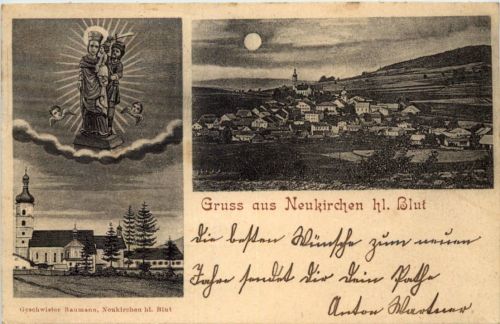 Gruss aus Neukirchen hl. Blut
Die besten Wünsche zum neuen
Jahre sendet dir dein Pathe
Anton Wartner
Geschwister Baumann, Neukirchen hl. Blut